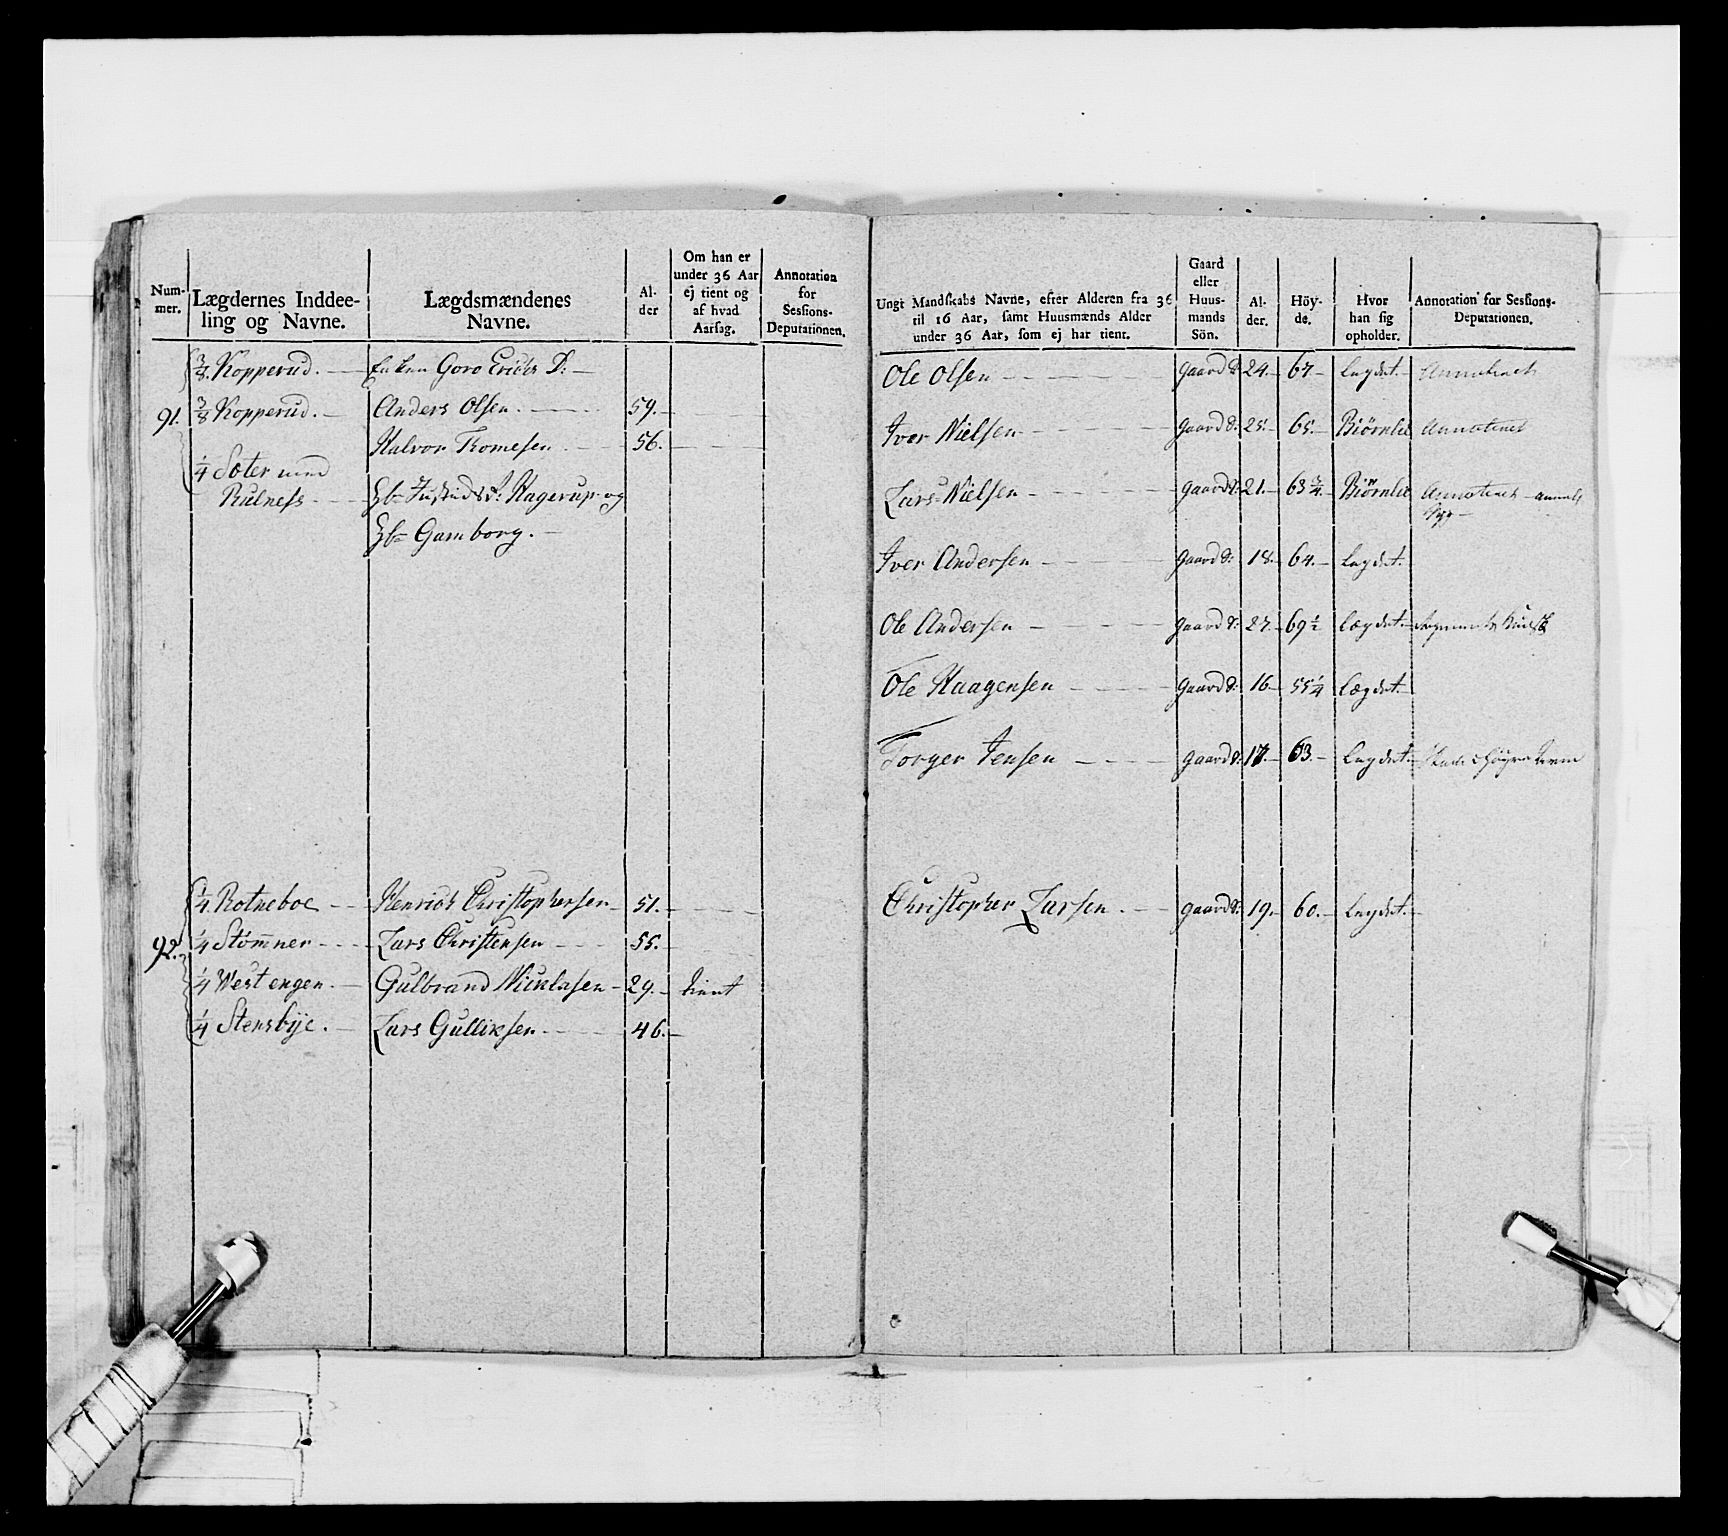 Num-
mer.
Lægdernes Inddee-
ling og Navne.
Lægdsmændenes
Navne.
Al-
der
Om han er
under 36 Aar
ej tient og
af hvad
Aarsag.
Annotation
for
Sessions-
Deputationen.
3/8 Kopperud. Enken Goro Erichs D:
91. 3/8 Kopperud. Anders Olsen. 59.
Halvor Tromesen 56.
1/4 Soter med
Rulness Hagerup og
Gamborg.
1/4 Rotneboe Henrich Christophersen 51.
92. 1/4 Stømner Lars Christensen 55.
1/4 West engen. Gulbrand Nicolasen 29. tient
1/4 Stensbye. Lars Gulliksen 46.
Ungt Mandskabs Navne, efter Alderen fra 36
til 16 Aar, samt Huusmænds Alder
under 36 Aar, som ej har tient.
Gaard
eller
Huus-
mands
Sön.
Al-
der.
Höy-
de.
Hvor
han sig
opholder.
Annotation for Sessions-
Deputationen.
Ole Olsen Gaard S: 24. 67. Lægdet. Annoteret
Iver Nielsen Gaard S: 25. 65. Biørnlie Annoteret
Lars Nielsen Gaard S: 21. 63 3/4. Biørnlie Annoteret
Iver Andersen Gaard S: 18. 64. Lægdet.
Ole Andersen Gaard S: 27. 69 1/2 Lægdet.
Ole Haagensen Gaard S: 16. 55 1/4 Lægdet.
Torger Jensen Gaard S: 17. 63. Lægdet.
Christopher Larsen. Gaard S: 19. 60. Lægdet.